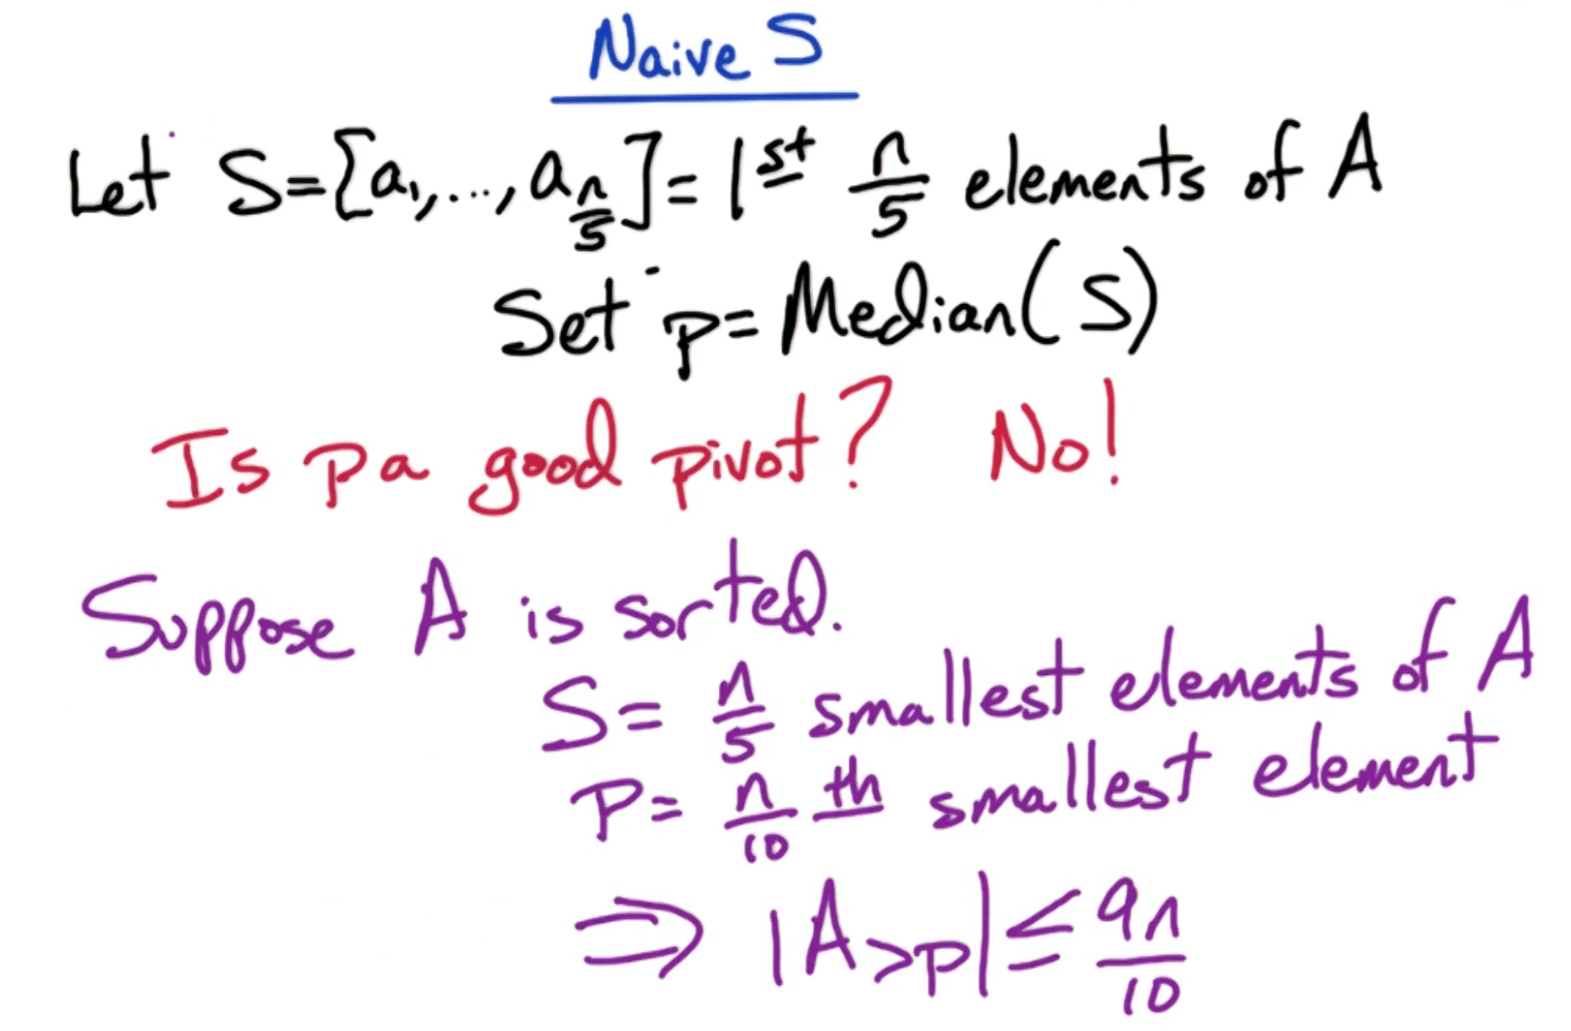 Naive S
Let S=[a₁,...,a_{n/5}]=1st n/5 elements of A
Set p=Median(S)
Is p a good pivot? No!
Suppose A is sorted.
S= n/5 smallest elements of A
P= n/10 th smallest element
⇒ |A_{>p}| ≤ 9n/10